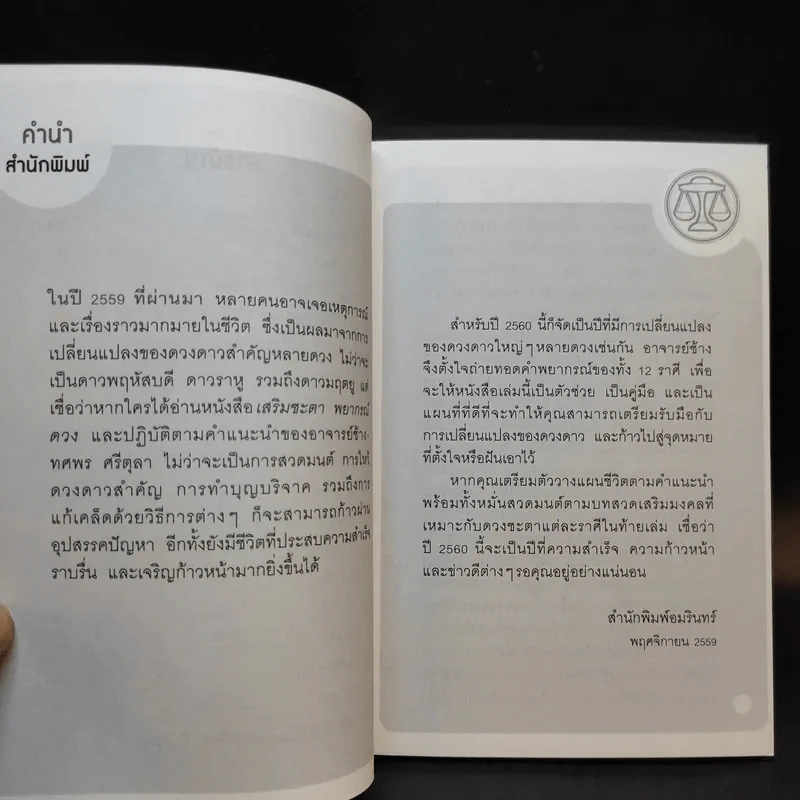 คำนำ
สำนักพิมพ์
ในปี 2559 ที่ผ่านมา หลายคนอาจเจอเหตุการณ์
และเรื่องราวมากมายในชีวิต ซึ่งเป็นผลมาจากการ
เปลี่ยนแปลงของดวงดาวสำคัญหลายดวง ไม่ว่าจะ
เป็นดาวพฤหัสบดี ดาวราหู รวมถึงดาวมฤตยู แต่
เชื่อว่าหากใครได้อ่านหนังสือเสริมชะตา พยากรณ์
ดวง และปฏิบัติตามคำแนะนำของอาจารย์ช้าง-
ทศพร ศรีตุลา ไม่ว่าจะเป็นการสวดมนต์ การไหว้
ดวงดาวสำคัญ การทำบุญบริจาค รวมถึงการ
แก้เคล็ดด้วยวิธีการต่างๆ ก็จะสามารถก้าวผ่าน
อุปสรรคปัญหา อีกทั้งยังมีชีวิตที่ประสบความสำเร็จ
ราบรื่น และเจริญก้าวหน้ามากยิ่งขึ้นได้
สำหรับปี 2560 นี้ก็จัดเป็นปีที่มีการเปลี่ยนแปลง
ของดวงดาวใหญ่ๆ หลายดวงเช่นกัน อาจารย์ช้าง
จึงตั้งใจถ่ายทอดคำพยากรณ์ของทั้ง 12 ราศี เพื่อ
จะให้หนังสือเล่มนี้เป็นตัวช่วย เป็นคู่มือ และเป็น
แผนที่ที่ดีที่จะทำให้คุณสามารถเตรียมรับมือกับ
การเปลี่ยนแปลงของดวงดาว และก้าวไปสู่จุดหมาย
ที่ตั้งใจหรือฝันเอาไว้
หากคุณเตรียมตัววางแผนชีวิตตามคำแนะนำ
พร้อมทั้งหมั่นสวดมนต์ตามบทสวดเสริมมงคลที่
เหมาะกับดวงชะตาแต่ละราศีในท้ายเล่ม เชื่อว่า
ปี 2560 นี้จะเป็นปีที่ความสำเร็จ ความก้าวหน้า
และข่าวดีต่างๆ รอคุณอยู่อย่างแน่นอน
สำนักพิมพ์อมรินทร์
พฤศจิกายน 2559